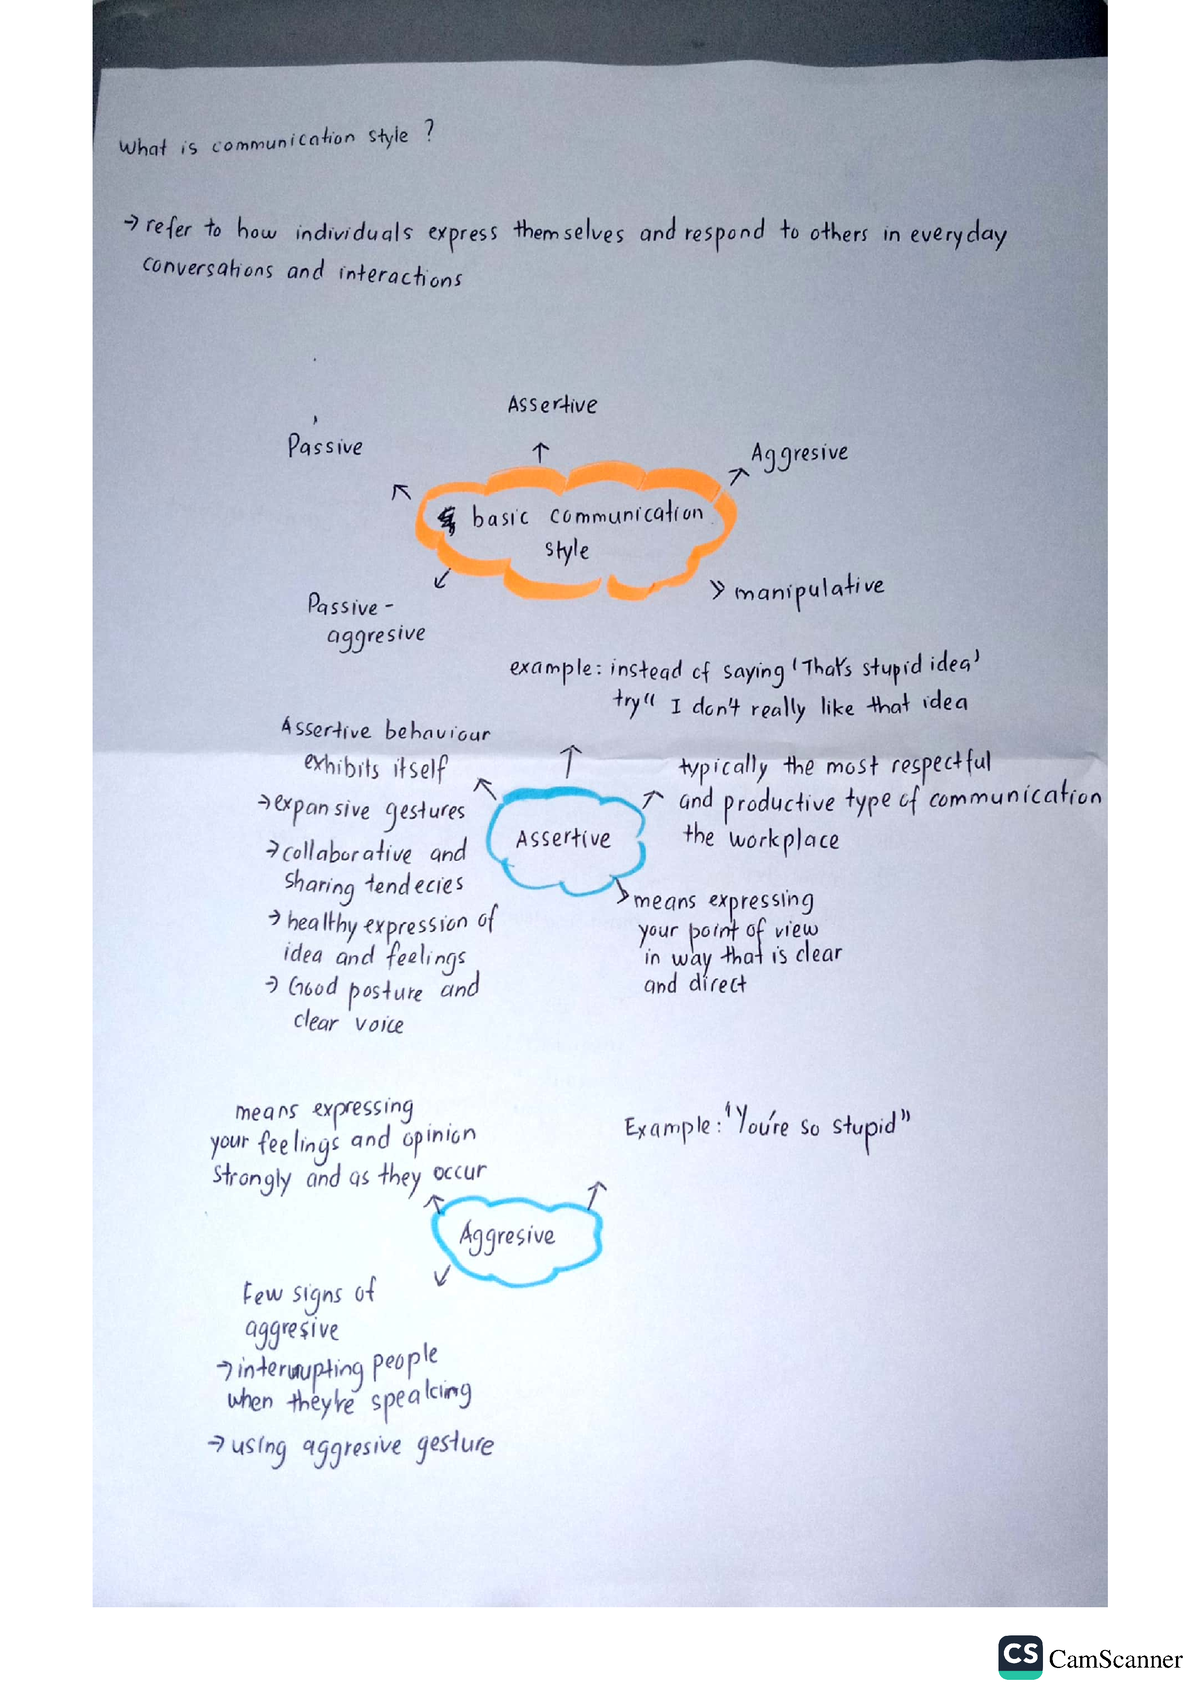 What is communication style ?
→ refer to how individuals express themselves and respond to others in everyday
conversations and interactions
Assertive
Passive
Aggresive
basic communication
style
manipulative
Passive -
aggresive
example: instead of saying 'That's stupid idea'
try" I don't really like that idea
Assertive behaviour
exhibits itself
→ expansive gestures
→ collaborative and
sharing tendecies
→ healthy expression of
idea and feelings
→ Good posture and
clear voice
Assertive
typically the most respectful
and productive type of communication
the workplace
means expressing
your point of view
in way that is clear
and direct
means expressing
your feelings and opinion
strongly and as they occur
Example: "You're so stupid"
Aggresive
Few signs of
aggresive
→ interrupting people
when they're speaking
→ using aggresive gesture
CS CamScanner